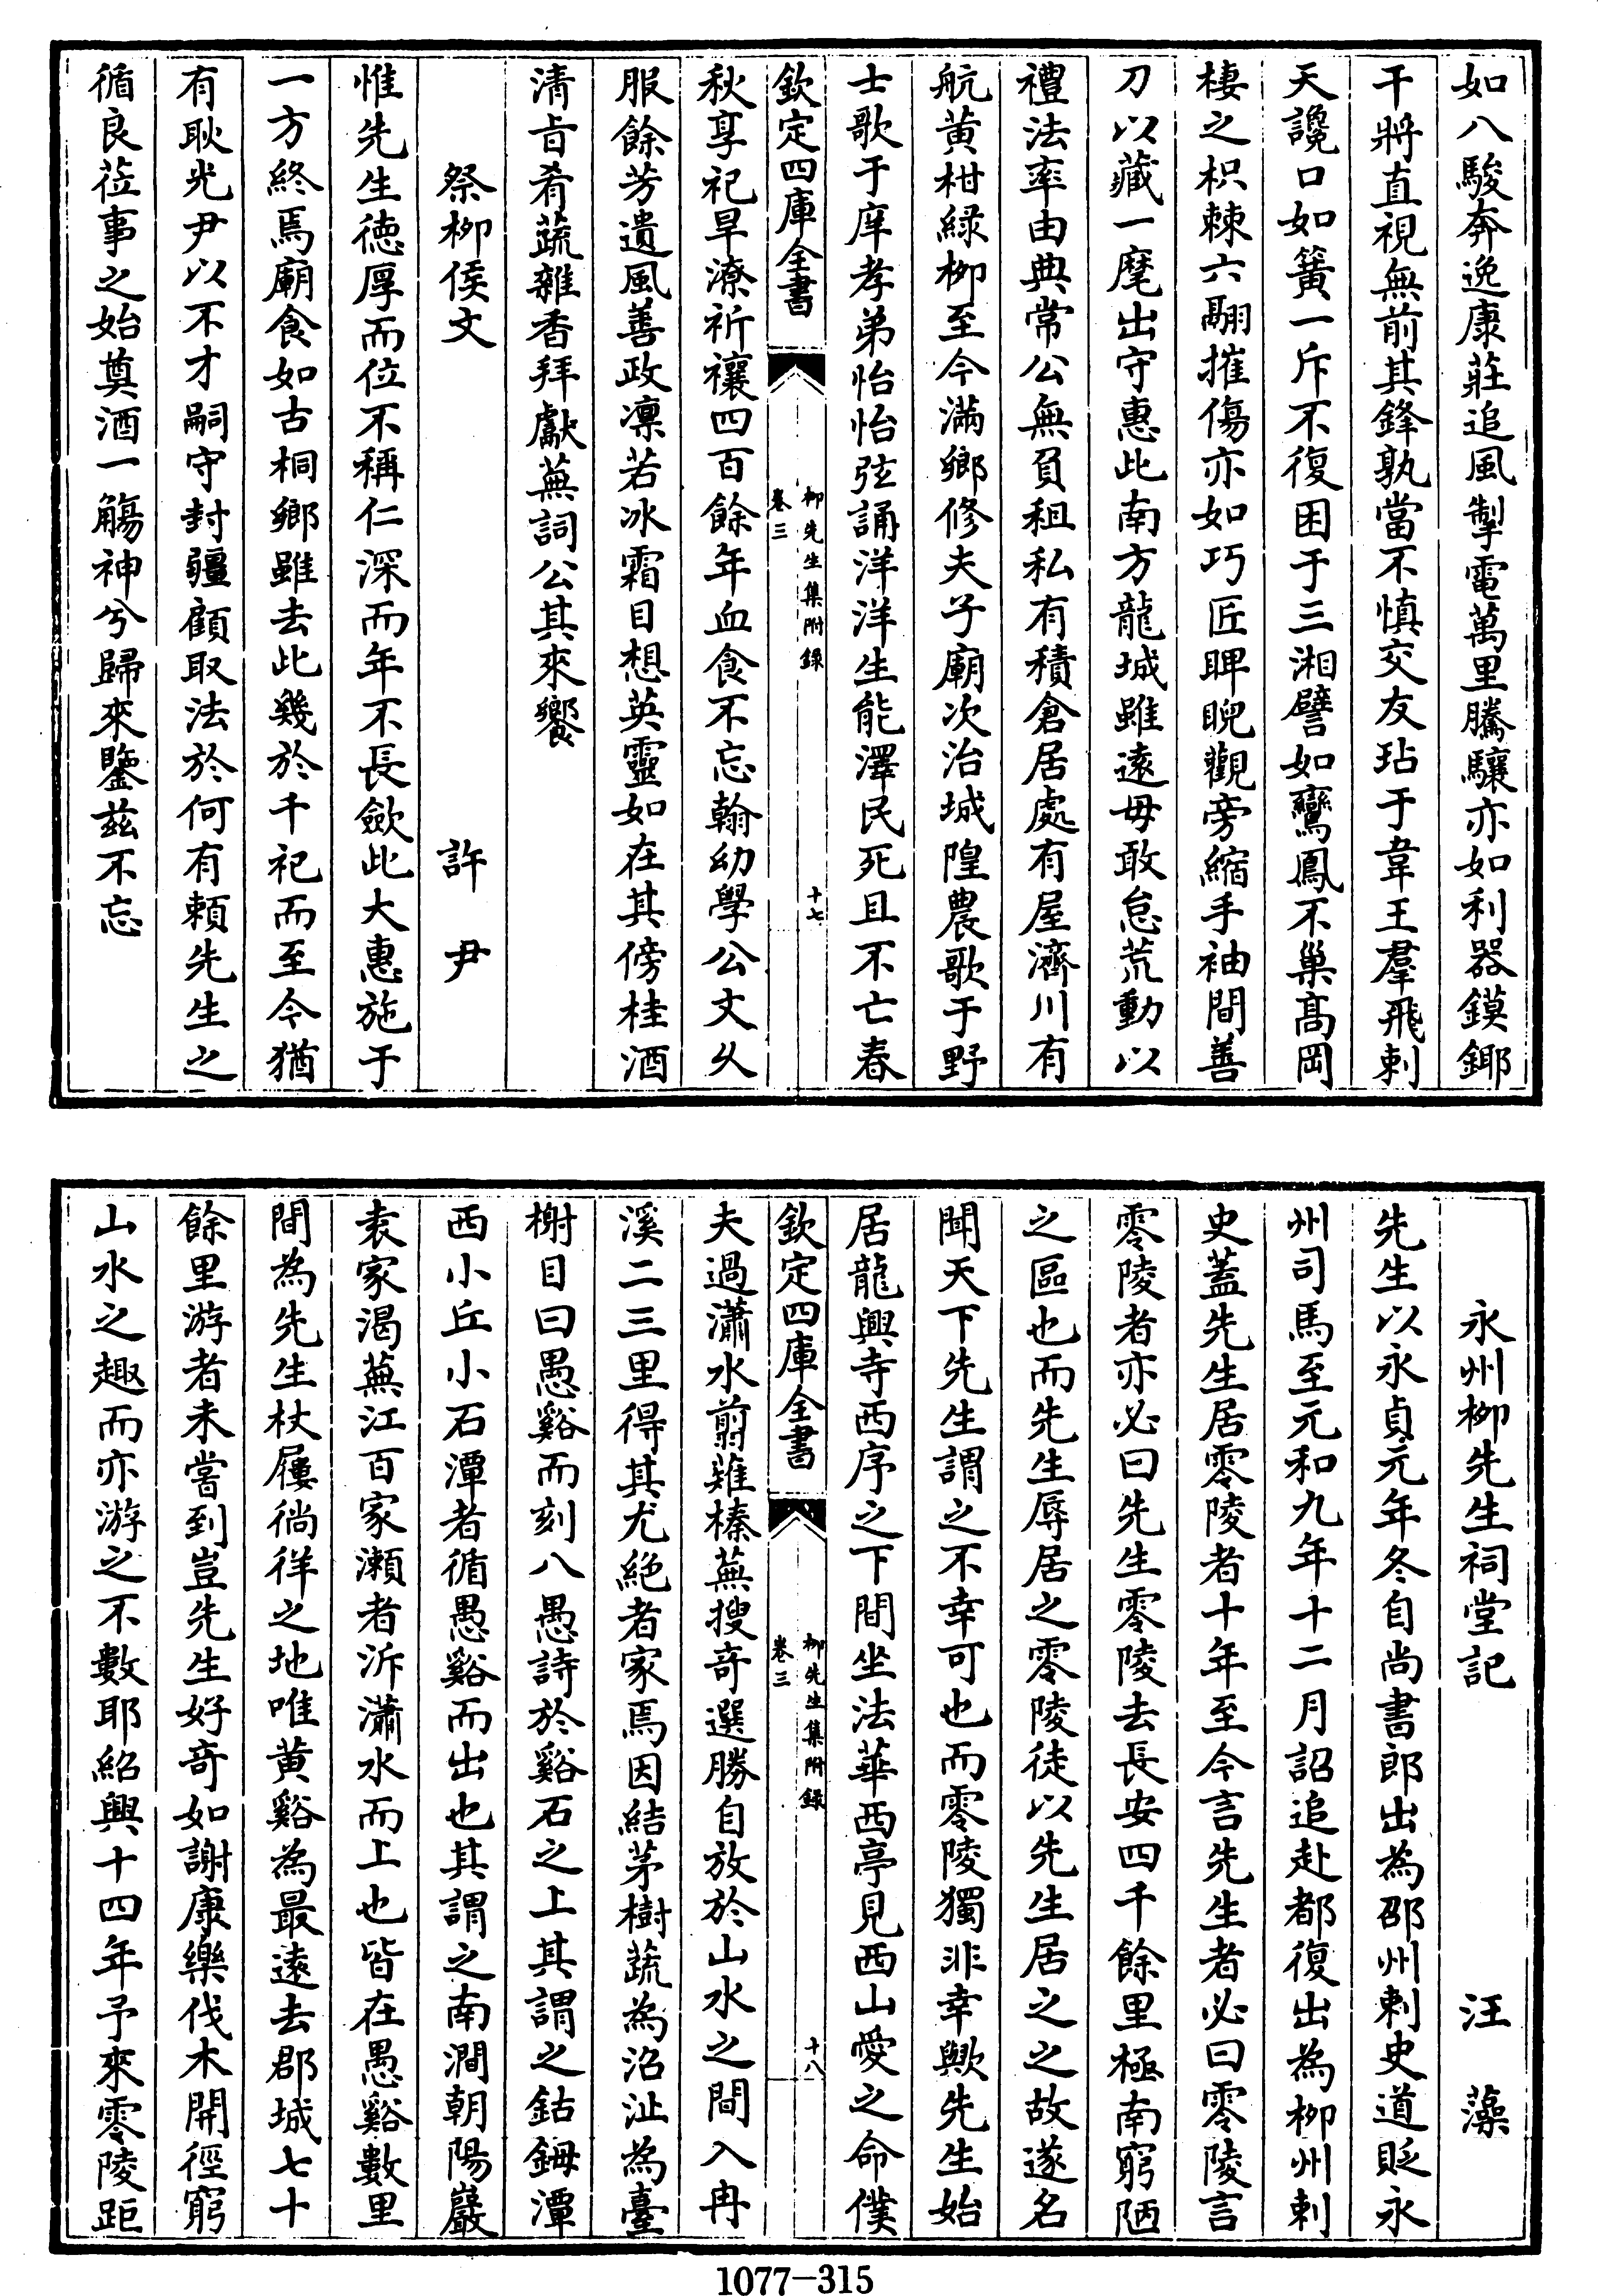 如八駿奔逸康莊追風掣電萬里騰驤亦如利器鏌鋣
干將直視無前其鋒孰當不慎交友玷于韋王羣飛刺
天讒口如簧一斥不復困于三湘譬如鸞鳳不巢髙岡
棲之枳棘六翮摧傷亦如巧匠睥睨觀旁縮手袖間善
刀以藏一麾出守惠此南方龍城雖遠毋敢怠荒動以
禮法率由典常公無負租私有積倉居處有屋濟川有
航黄柑緑栁至今滿鄉修夫子廟次治城隍農歌于野
士歌于庠孝弟怡怡弦誦洋洋生能澤民死且不亡春
欽定四庫全書
栁先生集附録
卷三
十七
秋享祀旱潦祈禳四百餘年血食不忘翰幼學公文乆
服餘芳遺風善政凛若冰霜目想英靈如在其傍桂酒
清㫖肴蔬雜香拜獻蕪詞公其來饗
祭栁侯文
許尹
惟先生徳厚而位不稱仁深而年不長歛此大惠施于
一方終焉廟食如古桐鄉雖去此幾於千祀而至今猶
有耿光尹以不才嗣守封疆顧取法於何有頼先生之
循良莅事之始奠酒一觴神兮歸來鑒兹不忘
永州栁先生祠堂記
汪藻
先生以永貞元年冬自尚書郎出為邵州刺史道貶永
州司馬至元和九年十二月詔追赴都復出為栁州刺
史蓋先生居零陵者十年至今言先生者必曰零陵言
零陵者亦必曰先生零陵去長安四千餘里極南窮陋
之區也而先生辱居之零陵徒以先生居之之故遂名
聞天下先生謂之不幸可也而零陵獨非幸歟先生始
居龍興寺西序之下間坐法華西亭見西山愛之命僕
欽定四庫全書
栁先生集附録
卷三
十八
夫過瀟水翦薙榛蕪搜竒選勝自放於山水之間入冉
溪二三里得其尤絶者家焉因結茅樹蔬為沼沚為臺
榭目曰愚谿而刻八愚詩於谿石之上其謂之鈷鉧潭
西小丘小石潭者循愚谿而出也其謂之南澗朝陽巖
袁家渴蕪江百家瀬者泝瀟水而上也皆在愚谿數里
間為先生杖屨徜徉之地唯黄谿為最遠去郡城七十
餘里游者未嘗到豈先生好竒如謝康樂伐木開徑窮
山水之趣而亦游之不數耶紹興十四年予來零陵距
1077-315